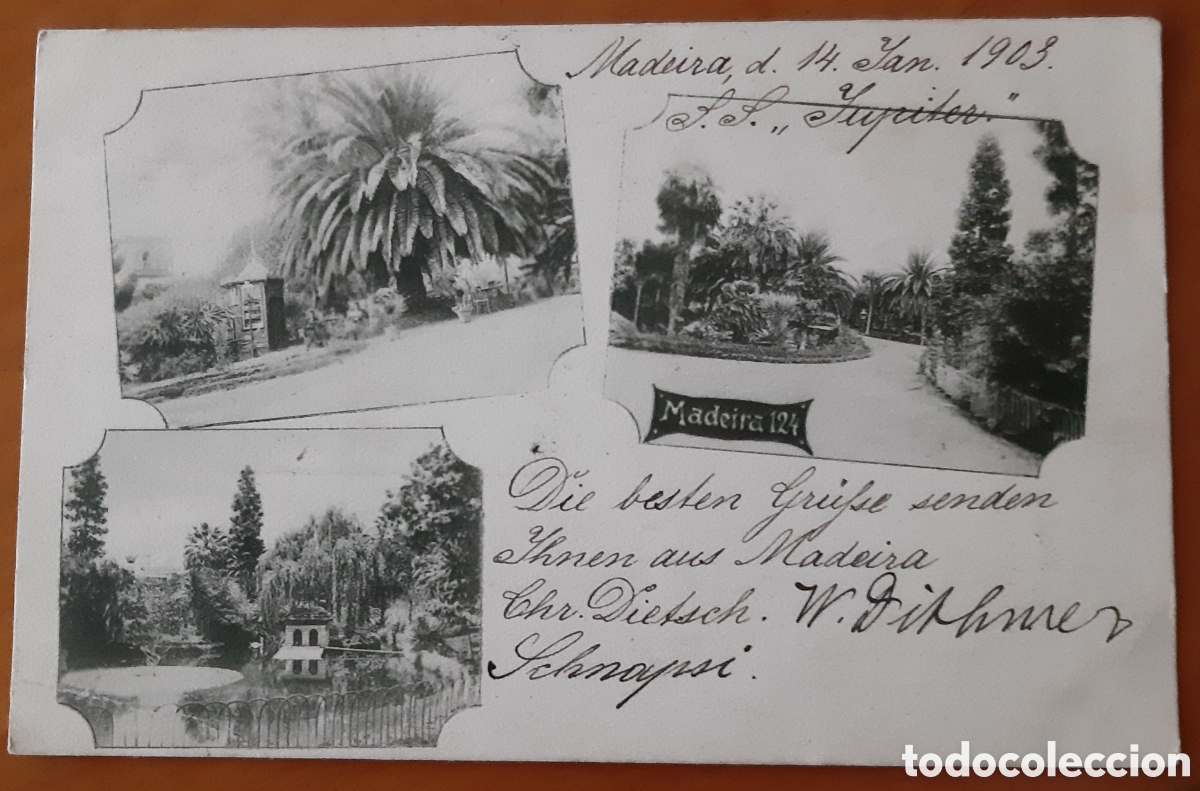 Madeira, d. 14. Jan. 1903.
S. S. „Jupiter."
Madeira 124
Die besten Grüße senden
Ihnen aus Madeira
Chr. Dietsch. W. Dithmer
Schnapsi.
todocoleccion.net